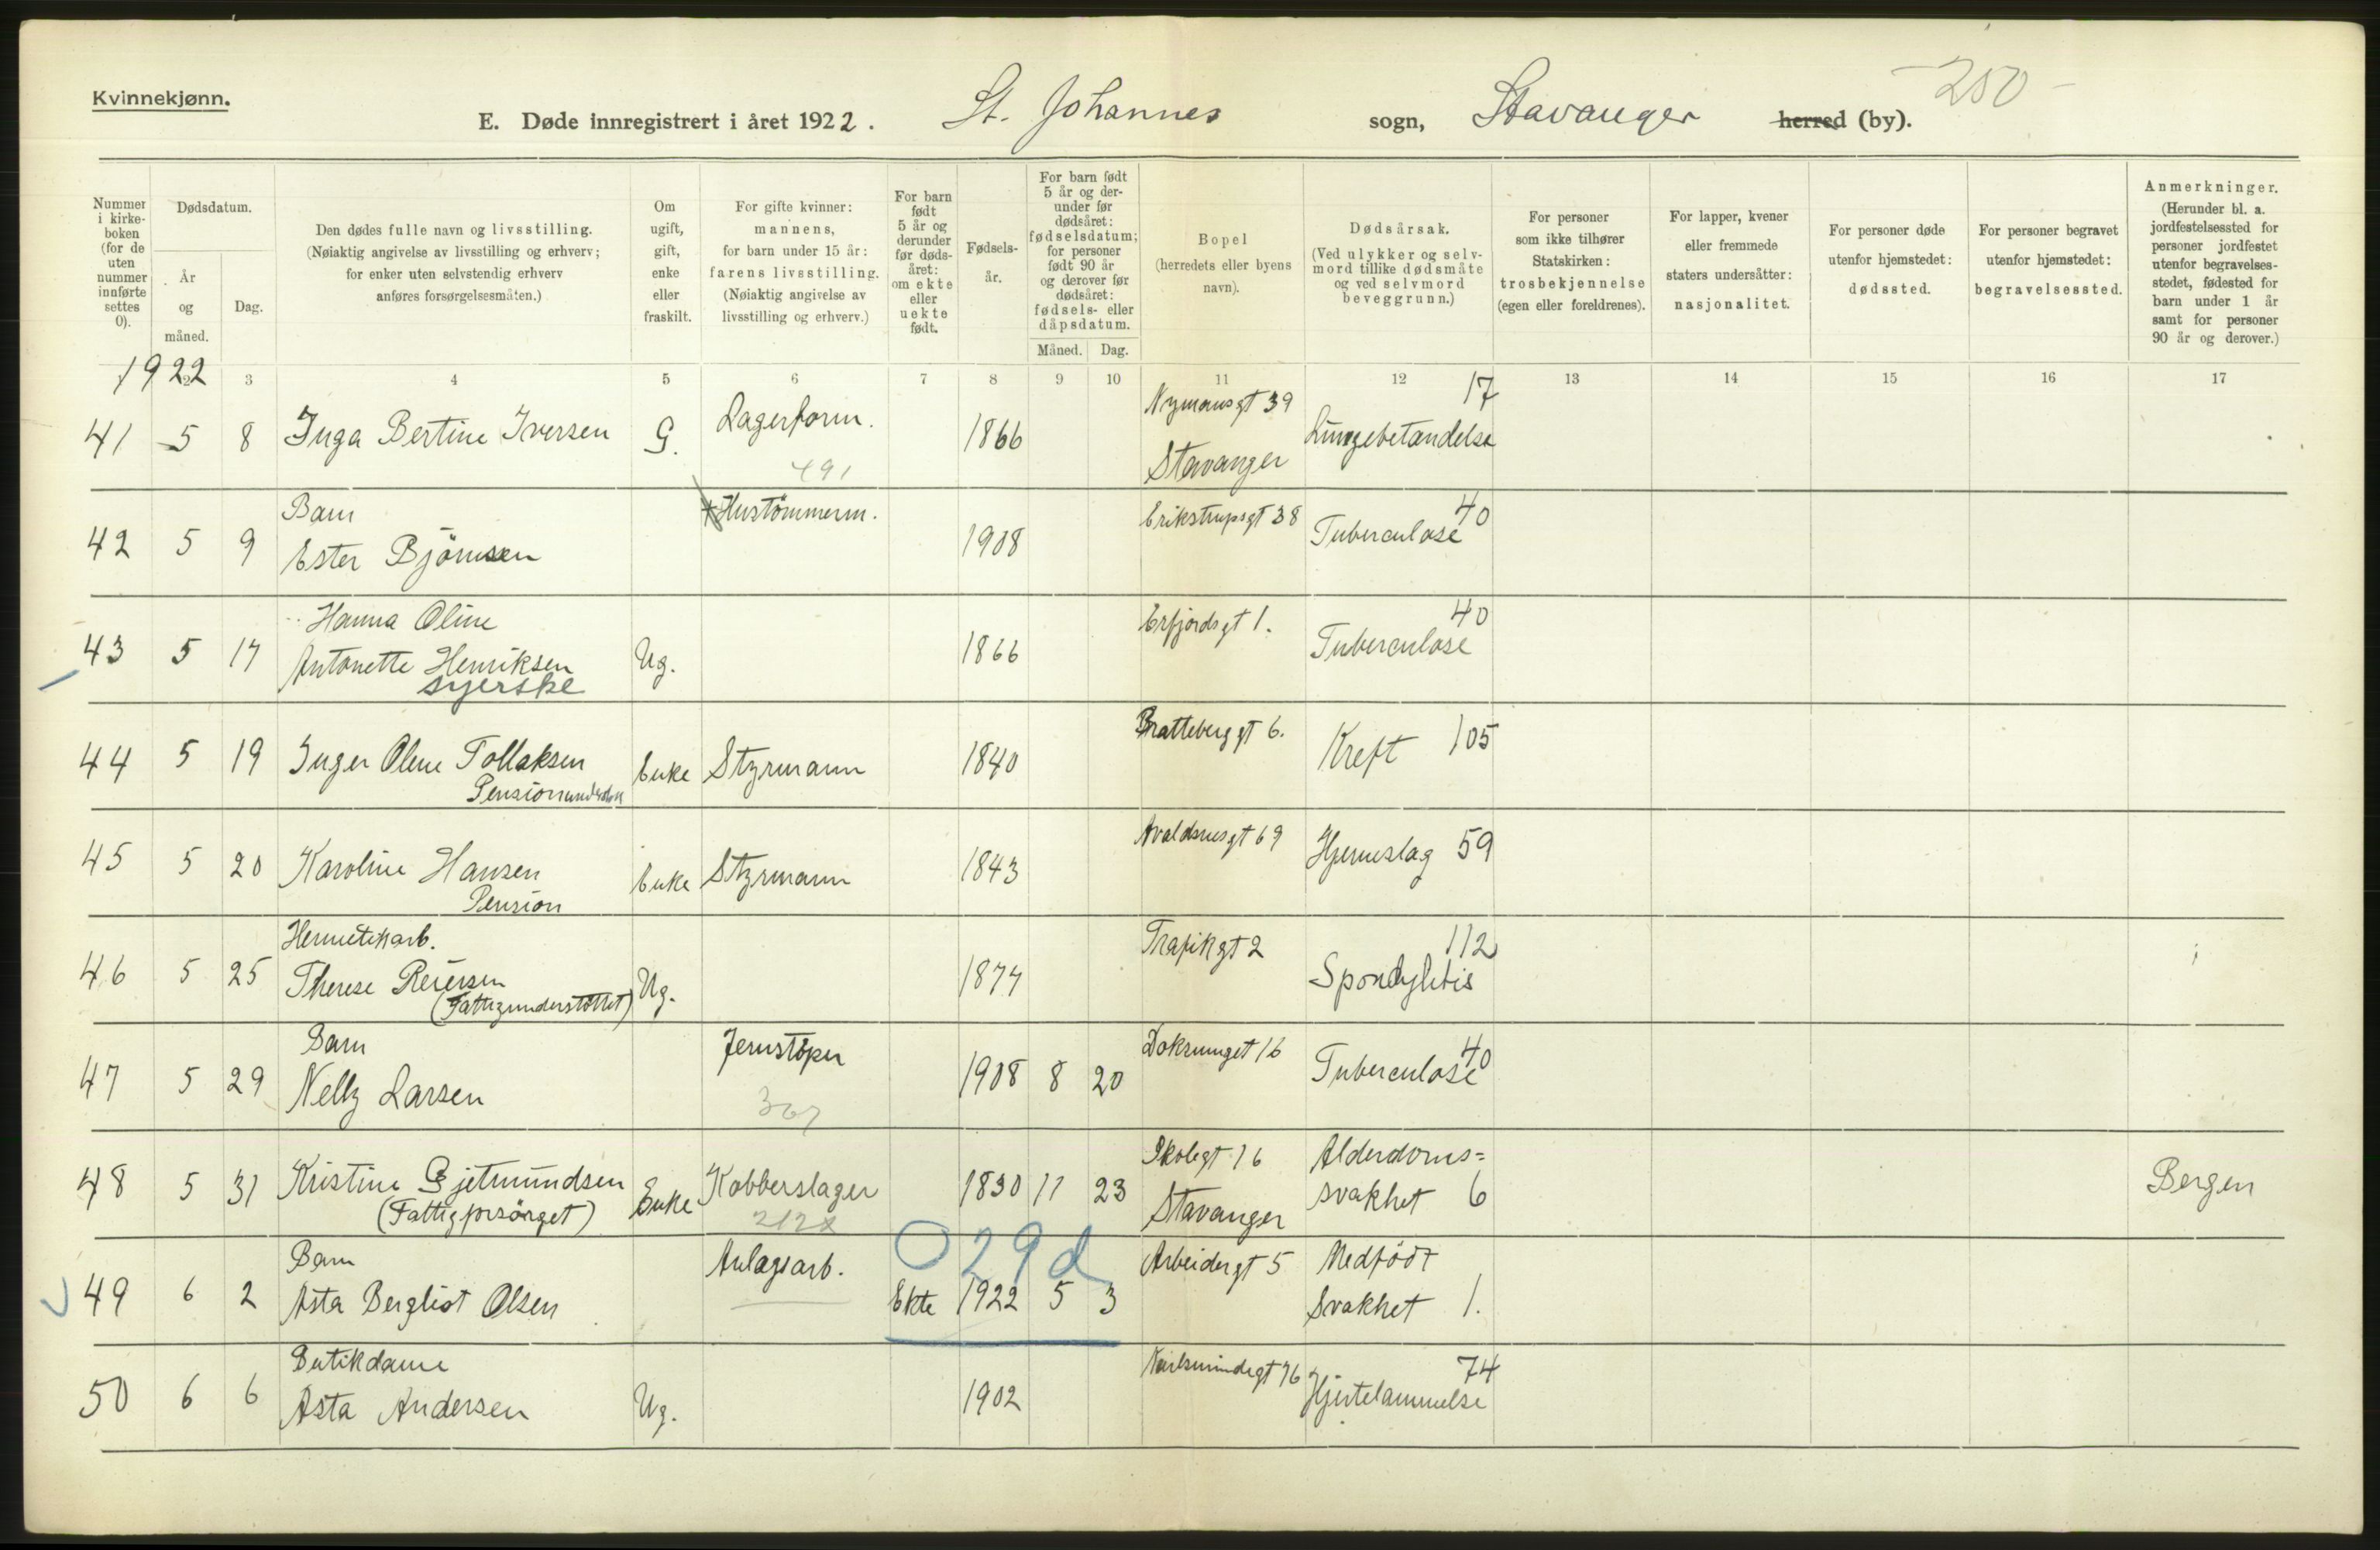 Kvinnekjønn.
E. Døde innregistrert i året 1922. St. Johannes sogn, Stavanger herred (by). -250-
Nummer i kirke-boken (for de uten nummer innførte settes 0).
Dødsdatum.
År og måned.
Dag.
Den dødes fulle navn og livsstilling.
(Nøiaktig angivelse av livsstilling og erhverv;
for enker uten selvstendig erhverv
anføres forsørgelsesmåten.)
Om ugift, gift, enke eller fraskilt.
For gifte kvinner:
mannens,
for barn under 15 år:
farens livsstilling.
(Nøiaktig angivelse av
livsstilling og erhverv.)
For barn født 5 år og derunder før døds-året: om ekte eller uekte født.
Fødsels-år.
For barn født 5 år og der-under før dødsåret: fødselsdatum; for personer født 90 år og derover før dødsåret: fødsels- eller dåpsdatum.
Måned. Dag.
Bopel
(herredets eller byens navn).
Dødsårsak.
(Ved ulykker og selv-mord tillike dødsmåte og ved selvmord beveggrunn.)
For personer som ikke tilhører Statskirken:
trosbekjennelse
(egen eller foreldrenes).
For lapper, kvener eller fremmede staters undersåtter:
nasjonalitet.
For personer døde utenfor hjemstedet:
dødssted.
For personer begravet utenfor hjemstedet:
begravelsessted.
Anmerkninger.
(Herunder bl. a. jordfestelsessted for personer jordfestet utenfor begravelses-stedet, fødested for barn under 1 år samt for personer 90 år og derover.)
1922 2 3 4 5 6 7 8 9 10 11 12 13 14 15 16 17
Nymansgt 39 17
41 5 8 Inga Bertine Iversen G. Lagerform. 1866 Stavanger Lungebetændelse
491
Barn Hustømmerm. Erikstrupsgt 38 40
42 5 9 Ester Bjørnsen 1908 Tuberculose
Hanna Oline Erfjordsgt 1. 40
43 5 17 Antonette Henriksen Ug. 1866 Tuberculose
syerske
Bratteberggt 6.
44 5 19 Inger Olene Tollaksen Enke Styrmann 1840 Kreft 105
Avaldsnesgt 69
45 5 20 Karoline Hansen Enke Styrmann 1843 Hjerneslag 59
Pension
Hermetikarb. Trafikgt 2 112
46 5 25 Therese Reiersen Ug. 1877 Spondylitis
(Fattigunderstøttet)
Barn Jernstøper 40
47 5 29 Nelly Larsen 1908 8 20 Tuberculose
367
Skolegt 16 Alderdoms=
48 5 31 Kristine Gjetmundsen Enke Kobberslager 1830 11 23 Stavanger svakhet 6 Bergen
(Fattigforsørget) 212x
029d
Barn Anlagsarb. Arbeidergt 5 Medfødt
49 6 2 Asta Bergliot Olsen Ekte 1922 5 3 Svakhet 1.
Butikdame Karlsmindegt 76 74
50 6 6 Asta Andersen Ug. 1902 Hjertelammelse